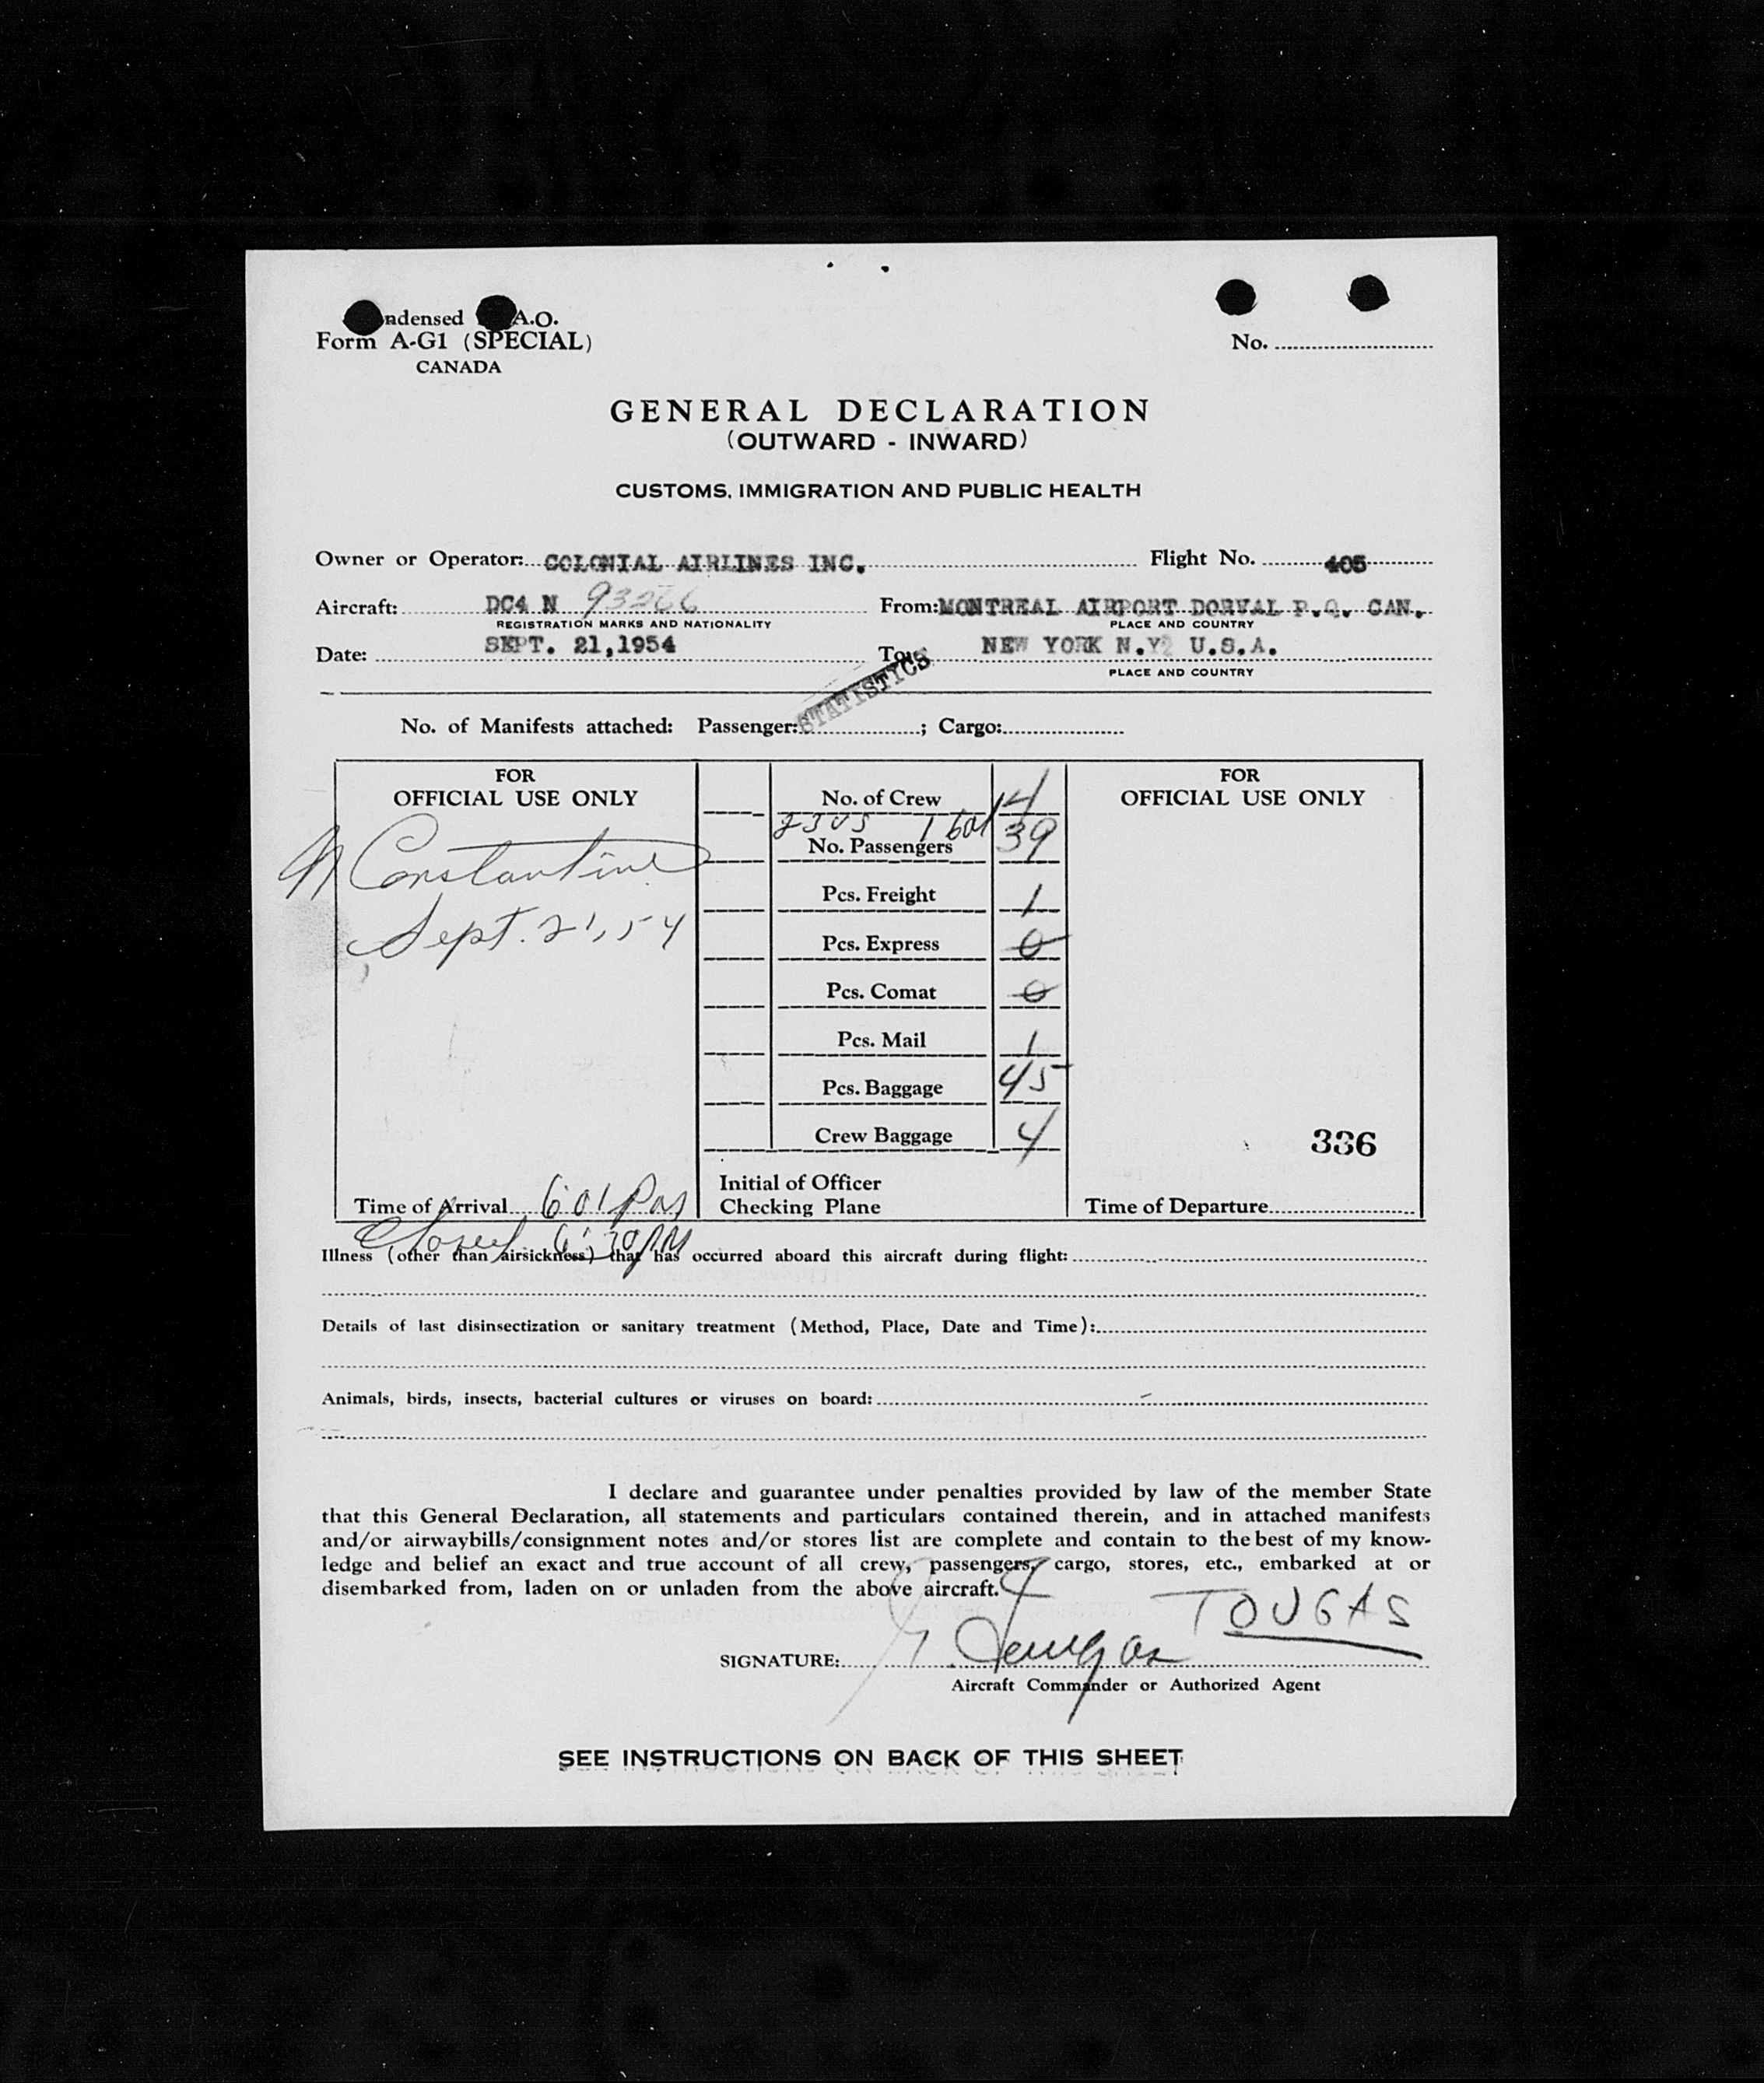 ndensed A.O.
Form A-G1 (SPECIAL)
CANADA
No.
GENERAL DECLARATION
(OUTWARD - INWARD)
CUSTOMS, IMMIGRATION AND PUBLIC HEALTH
Owner or Operator: COLONIAL AIRLINES INC. Flight No. 405
Aircraft: DC4 N 93266 From: MONTREAL AIRPORT DORVAL P.Q. CAN.
REGISTRATION MARKS AND NATIONALITY PLACE AND COUNTRY
Date: SEPT. 21,1954 To: NEW YORK N.Y. U.S.A.
PLACE AND COUNTRY
STATISTICS
No. of Manifests attached: Passenger: ; Cargo:
FOR
OFFICIAL USE ONLY
Constantine
Sept. 21, 54
Time of Arrival 6 01 PM
Closed 6:30 PM
No. of Crew 4
No. Passengers 39
Pcs. Freight 1
Pcs. Express 0
Pcs. Comat 0
Pcs. Mail 1
Pcs. Baggage 45
Crew Baggage 4
Initial of Officer
Checking Plane
FOR
OFFICIAL USE ONLY
336
Time of Departure
Illness (other than airsickness) that has occurred aboard this aircraft during flight:
Details of last disinsectization or sanitary treatment (Method, Place, Date and Time):
Animals, birds, insects, bacterial cultures or viruses on board:
I declare and guarantee under penalties provided by law of the member State
that this General Declaration, all statements and particulars contained therein, and in attached manifests
and/or airwaybills/consignment notes and/or stores list are complete and contain to the best of my know-
ledge and belief an exact and true account of all crew, passengers, cargo, stores, etc., embarked at or
disembarked from, laden on or unladen from the above aircraft.
TOUGAS
SIGNATURE: Tougas
Aircraft Commander or Authorized Agent
SEE INSTRUCTIONS ON BACK OF THIS SHEET